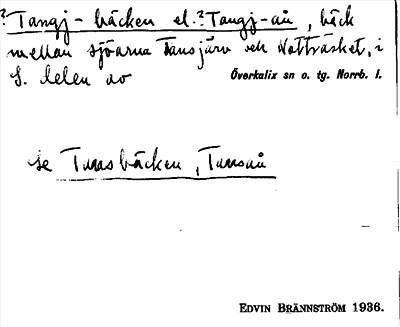 ?Tangj-bäcken el. ?Tangj-ån, bäck
mellan sjöarna Tansjärv och Nattträsket, i
S. delen av Överkalix sn o. tg. Norrb. l.
se Tansbäcken, Tansån
EDVIN BRÄNNSTRÖM 1936.